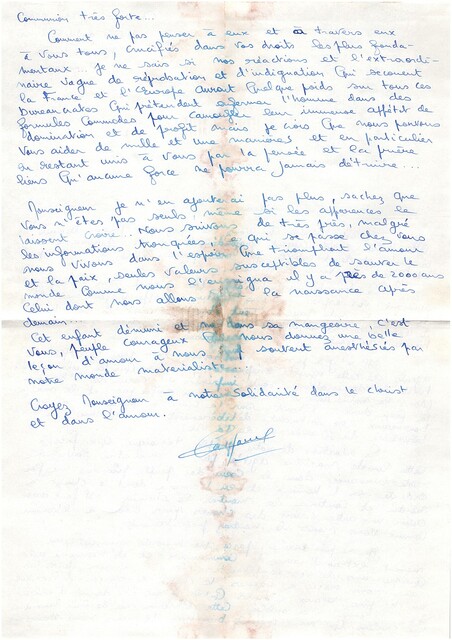 Communion très forte...
Comment ne pas penser à eux et à travers eux
à vous tous, crucifiés dans vos droits les plus fonda-
mentaux... Je ne sais si nos réactions et l'extraordi-
naire vague de réprobation et d'indignation qui secouent
la France et l'Europe auront quelque poids sur tous ces
bureaucrates qui prétendent enfermer l'homme dans des
formules commodes pour camoufler leur immense appétit de
domination et de profit mais je crois que nous pouvons
vous aider de mille et une manières et en particulier
en restant unis à vous par la pensée et la prière
liens qu'aucune force ne pourra jamais détruire...
Monseigneur je n'en ajouterai pas plus, sachez que
vous n'êtes pas seuls, même si les apparences le
laissent croire... Nous suivons de très près, malgré
les informations tronquées, ce qui se passe chez vous
nous vivons dans l'espoir que triomphent l'amour
et la paix, seules valeurs susceptibles de sauver le
monde comme nous l'enseigna il y a près de 2000 ans
Celui dont nous allons la naissance après
demain.
Cet enfant démuni et nu dans sa mangeoire, c'est
vous, peuple courageux qui nous donnez une belle
leçon d'amour à nous souvent anesthésiés par
notre monde matérialiste.
Croyez Monseigneur à notre solidarité dans le Christ
et dans l'amour.